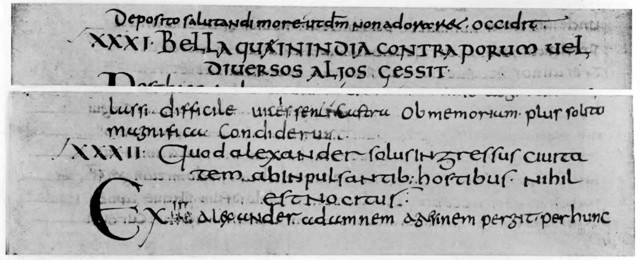 Deposito salutandi more ut dm non adorare occidit.
XXXI. Bella qua in india contra porum uel
diuersos alios gessit.
iussi difficile ob memoriam plus solito
magnifica condider
XXXII. Quod alexander solus ingressus ciuita
tem ab inpulsantib: hostibus nihil
est nocitus.
Ex alexander ad amnem agesinem pergit. per hunc